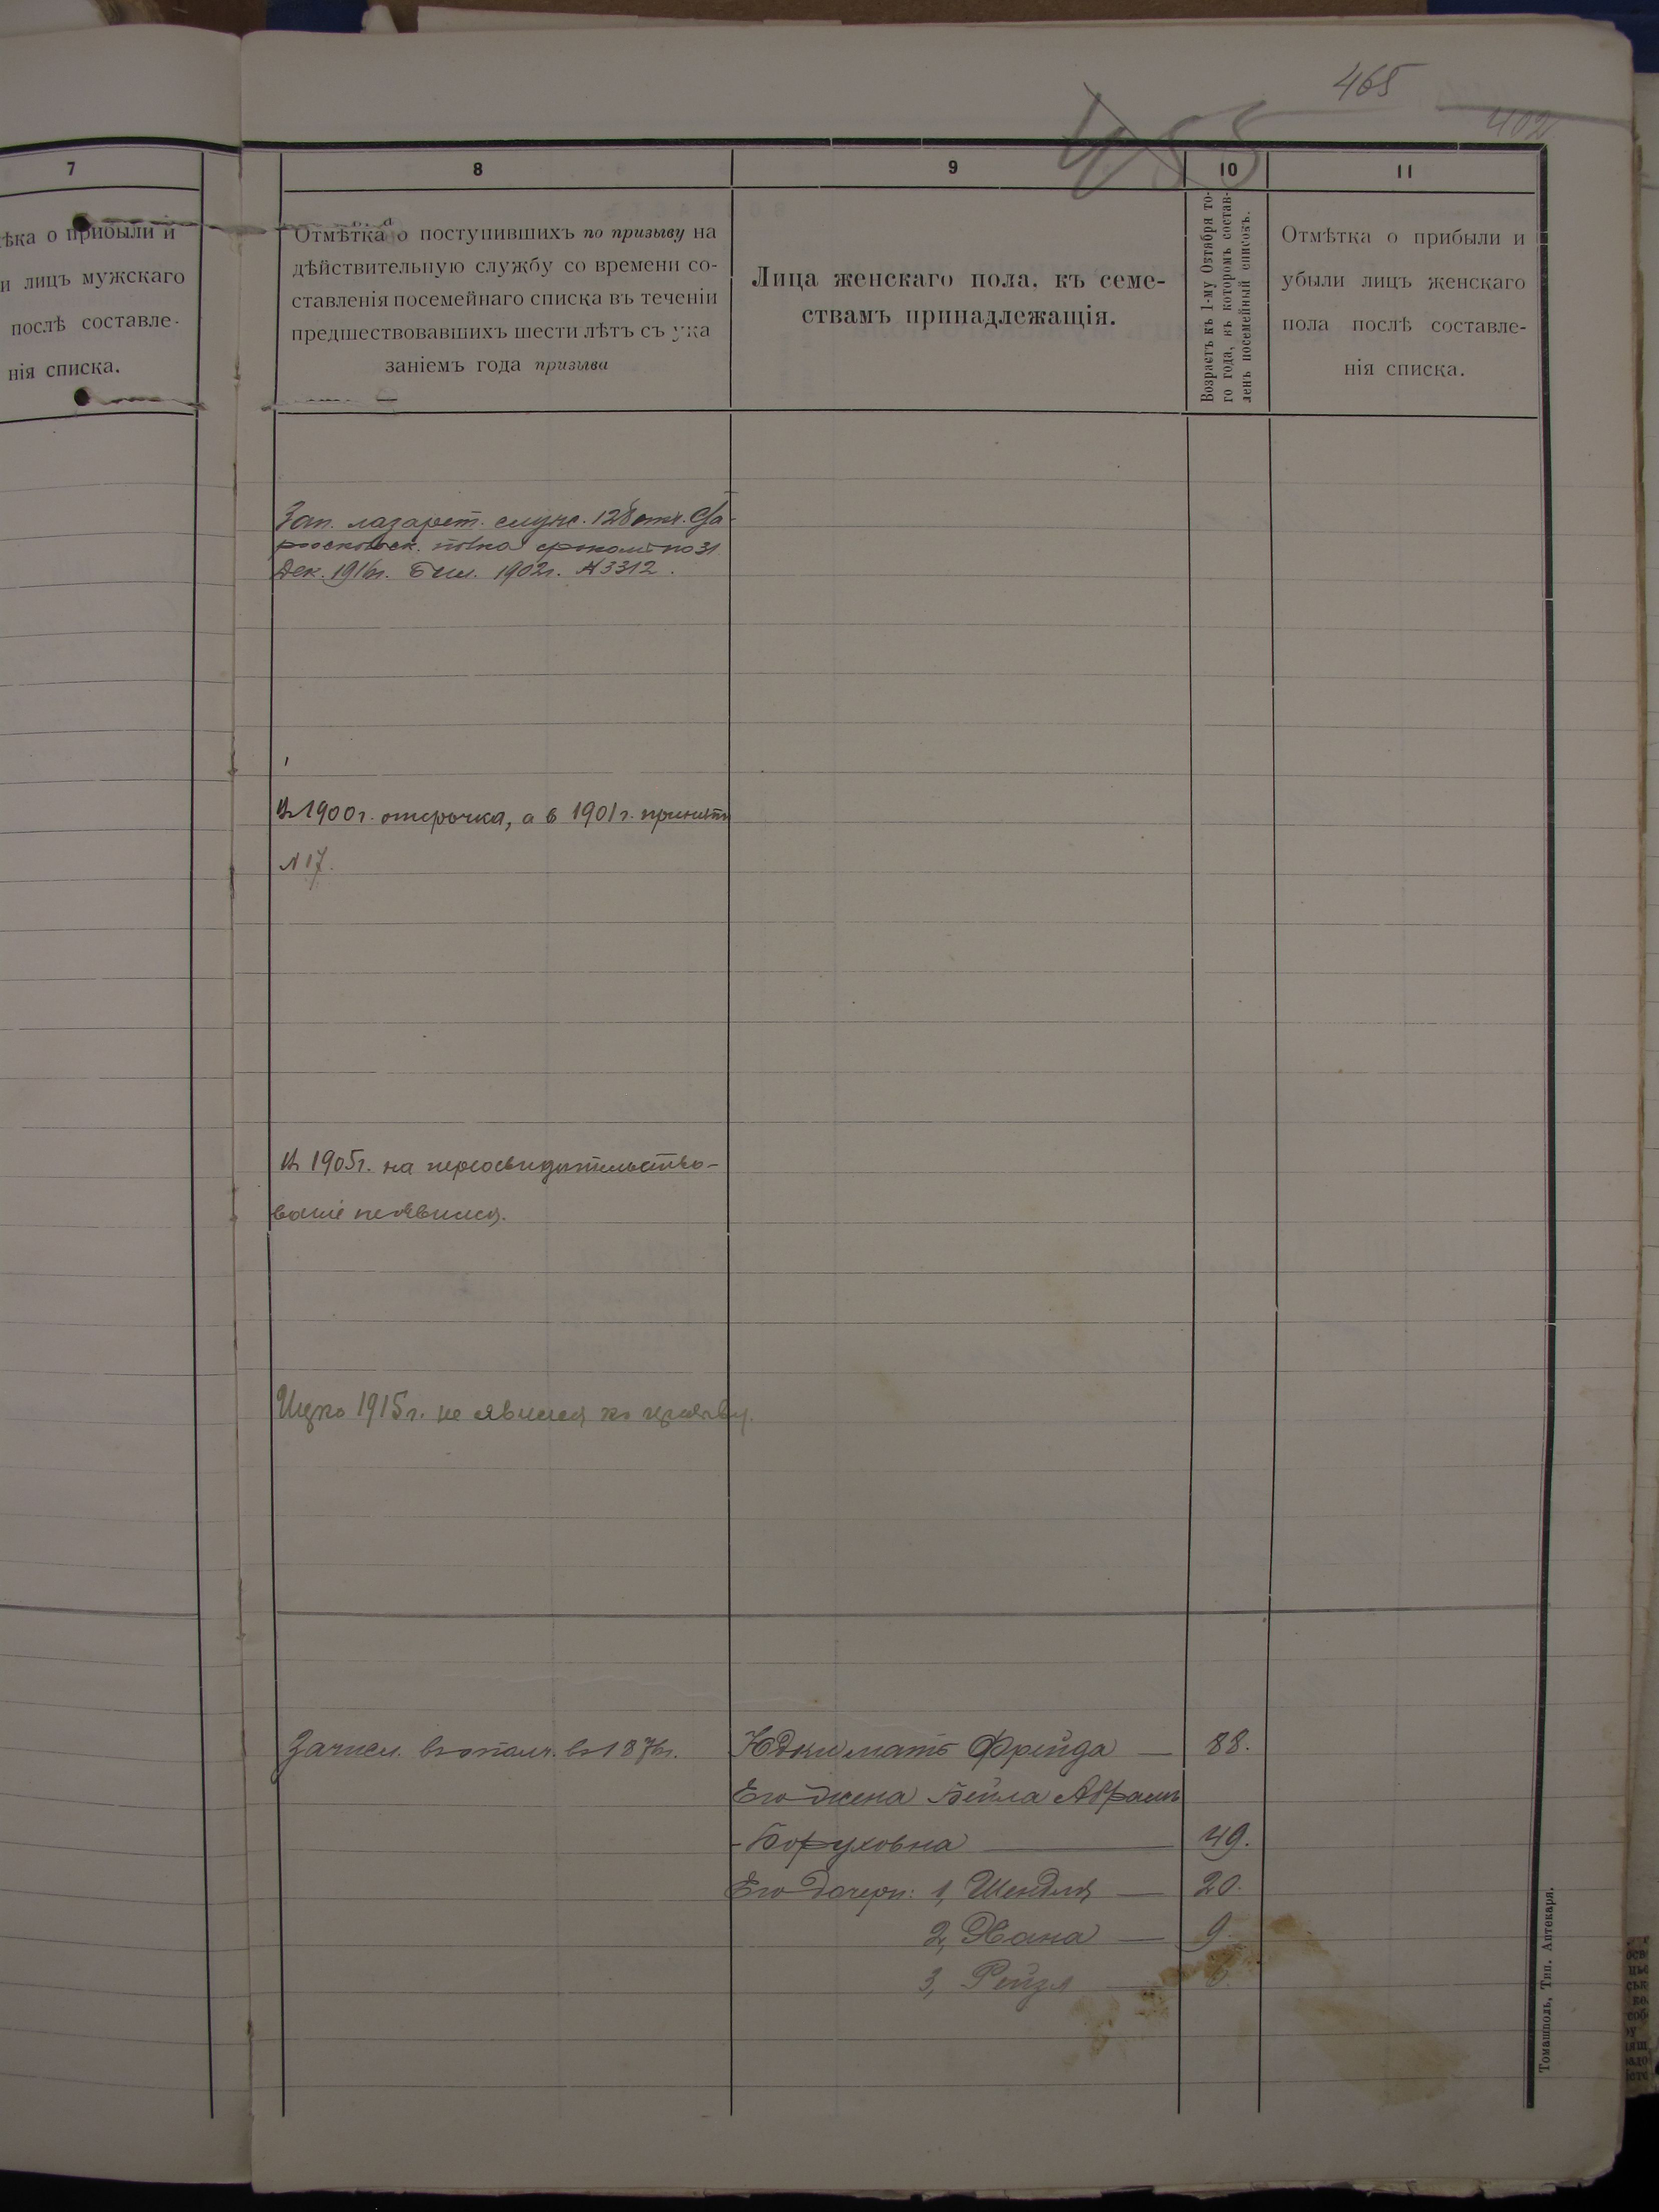 465
402
455
7
8
9
10
11
ѣка о прибыли и
и лицъ мужскаго
послѣ составле-
нія списка.
Отмѣтка о поступившихъ по призыву на
дѣйствительную службу со времени со-
ставленія посемейнаго списка въ теченіи
предшествовавшихъ шести лѣтъ съ ука
заніемъ года призыва
Лица женскаго пола, къ семе-
ствамъ принадлежащія.
Возрастъ къ 1-му Октября то-
го года, въ которомъ состав-
ленъ посемейный списокъ.
Отмѣтка о прибыли и
убыли лицъ женскаго
пола послѣ составле-
нія списка.
Зап. лазарет. служ. 128
полка срокомъ по 31
Дек. 1916г. Бил. 1902г. № 3312.
Въ 1900г. отсрочка, а в 1901г. принятъ
№ 17.
Въ 1905г. на переосвидѣтельство-
ваніе не явился.
Ицко 1915г. не явился къ призыву.
Зачисл. въ ополч. въ 1876г.
мать Фрейда — 88.
Его жена Бейла Абрамъ
-Боруховна — 49.
Его дочери: 1, Шендля — 20.
2, Хана — 9.
3, Рейзя — 6.
Томашполь, Тип. Аптекаря.